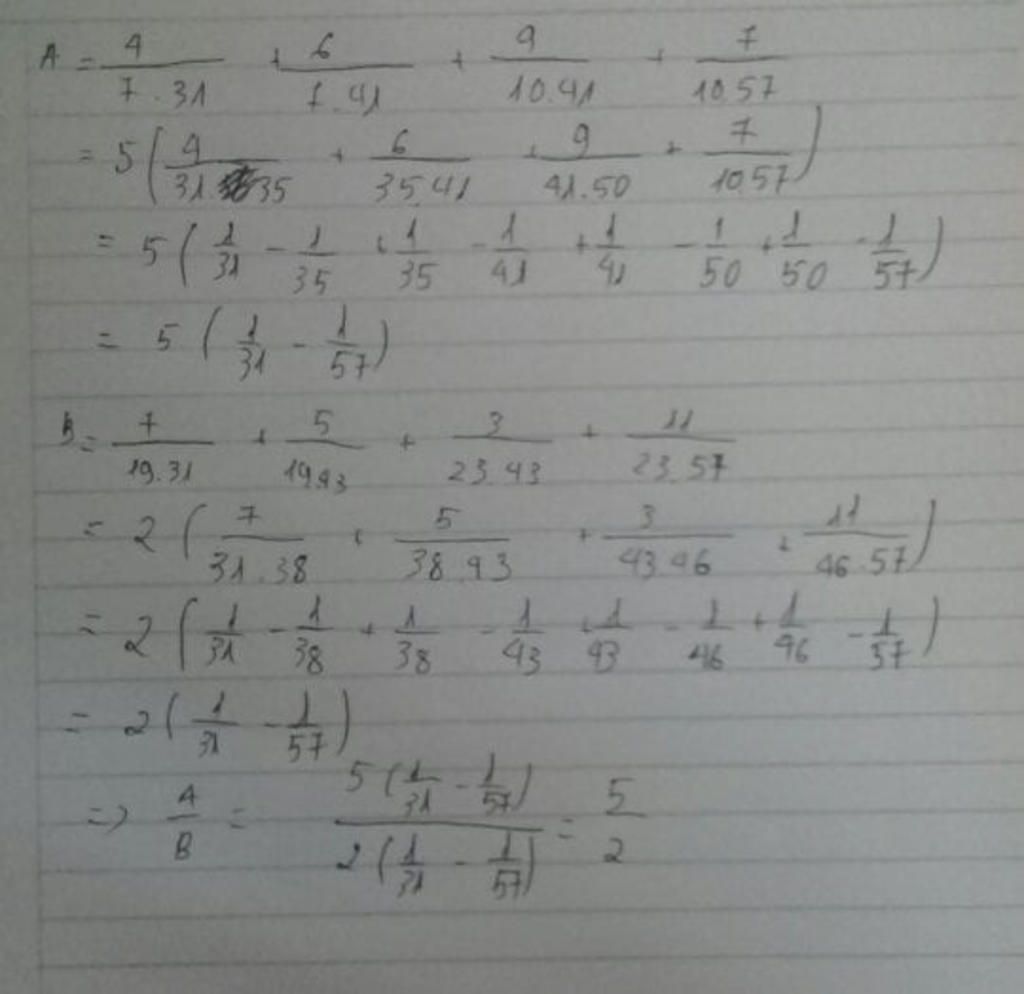 A = 4/7.31 + 6/7.41 + 9/10.41 + 7/10.57
= 5 ( 4/31.35 + 6/35.41 + 9/41.50 + 7/10.57 )
= 5 ( 1/31 - 1/35 + 1/35 - 1/41 + 1/41 - 1/50 + 1/50 - 1/57 )
= 5 ( 1/31 - 1/57 )
B = 7/19.31 + 5/19.43 + 3/23.43 + 11/23.57
= 2 ( 7/31.38 + 5/38.43 + 3/43.46 + 11/46.57 )
= 2 ( 1/31 - 1/38 + 1/38 - 1/43 + 1/43 - 1/46 + 1/46 - 1/57 )
= 2 ( 1/31 - 1/57 )
=> A/B = 5 ( 1/31 - 1/57 ) / 2 ( 1/31 - 1/57 ) = 5/2